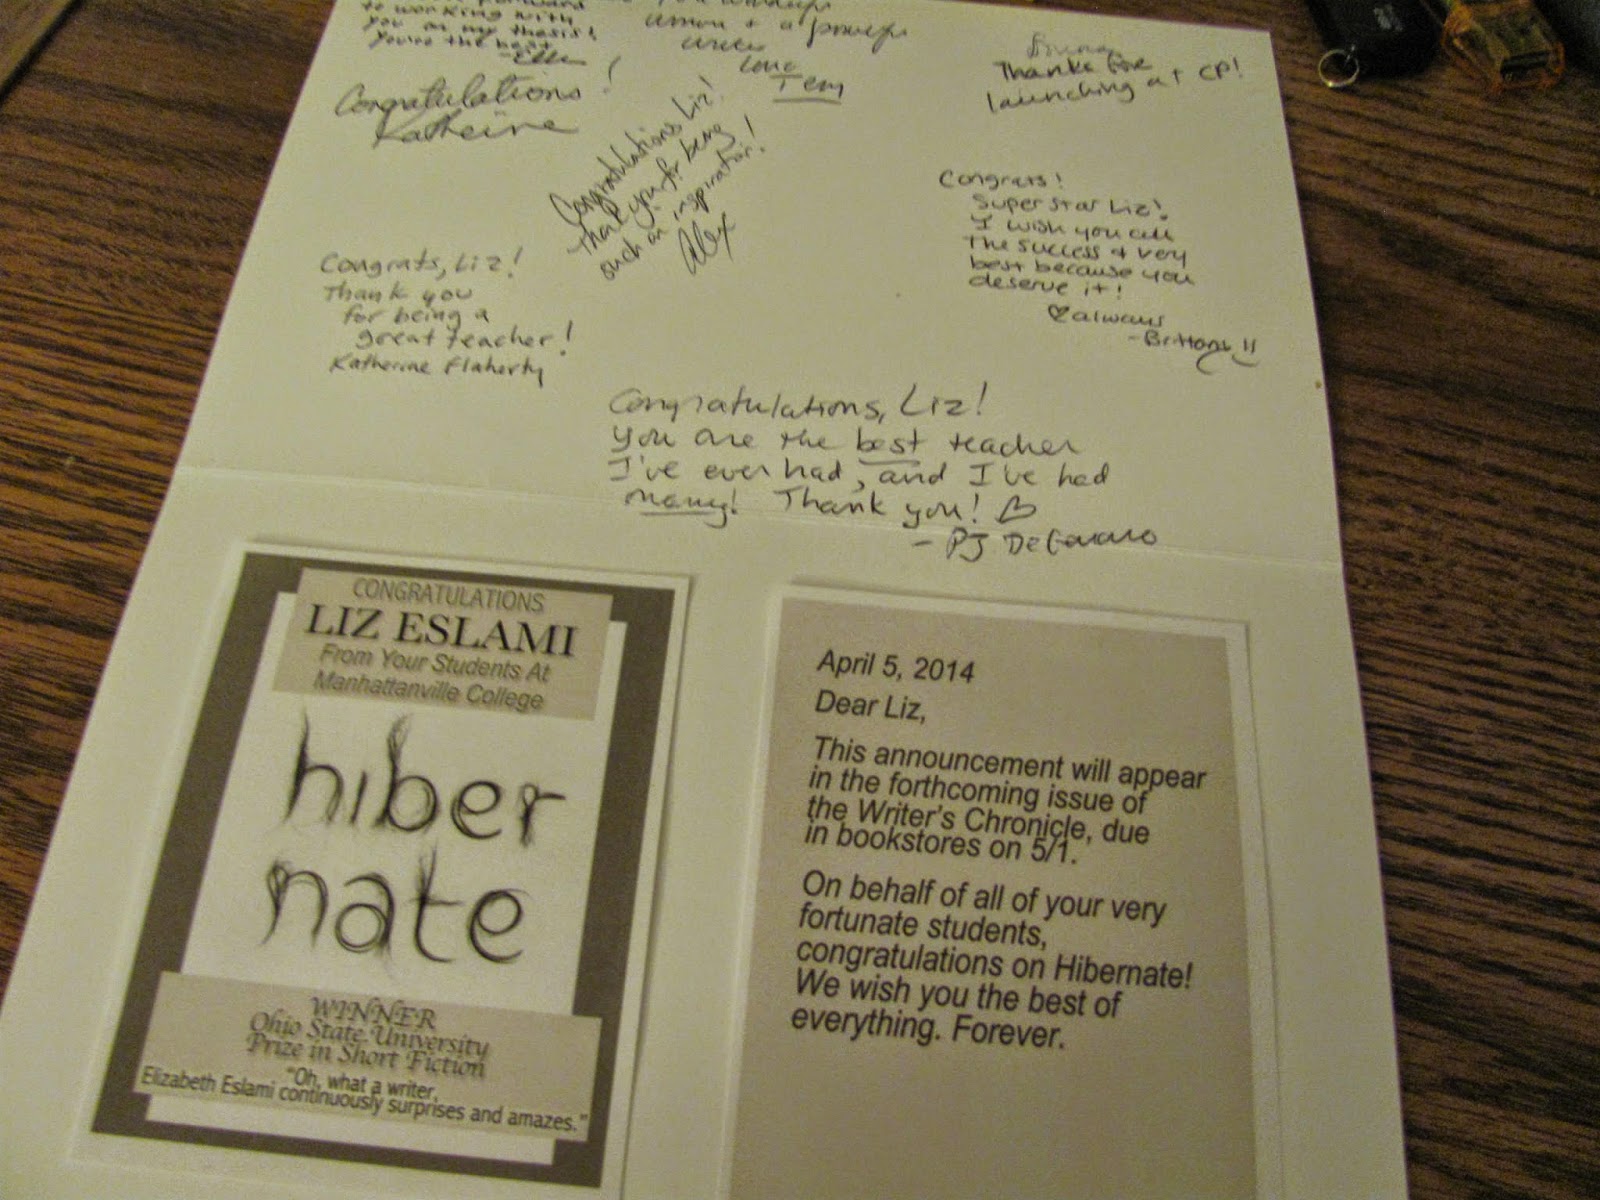 to working with
you on my thesis!
you're the best
-Elle
+ a powerful
writer
Love
Tem
Congratulations!
Katherine
Congratulations Liz!
Thank you for being
such an inspiration!
Alex
Thanks for
launching at CP!
Congrats!
Superstar Liz!
I wish you all
the success & very
best because you
deserve it!
♡always
-Brittany
Congrats, Liz!
Thank you
for being a
great teacher!
Katherine Flaherty
Congratulations, Liz!
You are the best teacher
I've ever had, and I've had
many! Thank you! ♡
- PJ
CONGRATULATIONS
LIZ ESLAMI
From Your Students At
Manhattanville College
hiber
nate
WINNER
Ohio State University
Prize in Short Fiction
"Oh, what a writer,
Elizabeth Eslami continuously surprises and amazes."
April 5, 2014
Dear Liz,
This announcement will appear
in the forthcoming issue of
the Writer's Chronicle, due
in bookstores on 5/1.
On behalf of all of your very
fortunate students,
congratulations on Hibernate!
We wish you the best of
everything. Forever.